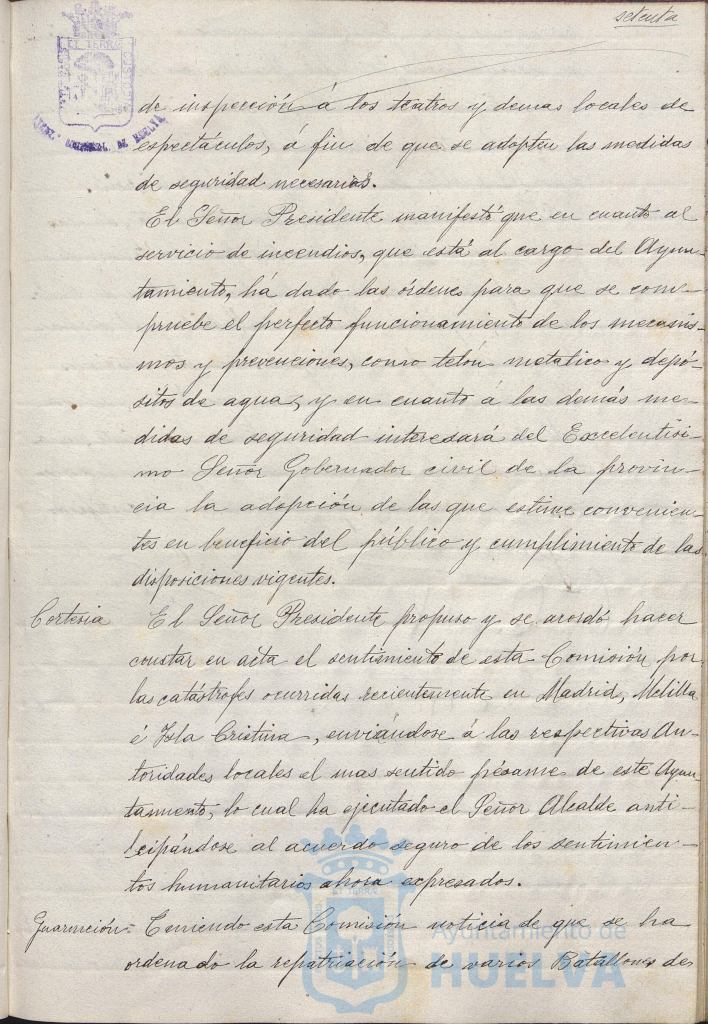 setenta
de inspección á los teatros y demas locales de
espectáculos, á fin de que se adopten las medidas
de seguridad necesarias.
El Señor Presidente manifestó que en cuanto al
servicio de incendios, que está al cargo del Ayun-
tamiento, há dado las órdenes para que se com-
pruebe el perfecto funcionamiento de los mecanis-
mos y prevenciones, como telón metalico y depó-
sitos de agua, y en cuanto á las demás me-
didas de seguridad interesará del Excelentisi-
mo Señor Gobernador civil de la provin-
cia la adopción de las que estime convenien-
tes en beneficio del público y cumplimiento de las
disposiciones vigentes.
Cortesia El Señor Presidente propuso y se acordó hacer
constar en acta el sentimiento de esta Comisión por
las catástrofes ocurridas recientemente en Madrid, Melilla
é Isla Cristina, enviándose á las respectivas Au-
toridades locales el mas sentido pésame de este Ayun-
tamiento, lo cual ha ejecutado el Señor Alcalde anti-
cipándose al acuerdo seguro de los sentimien-
tos humanitarios ahora expresados.
Guarnición= Teniendo esta Comisión noticia de que se ha
ordenado la repatriación de varios Batallones de
Ayuntamiento de
HUELVA